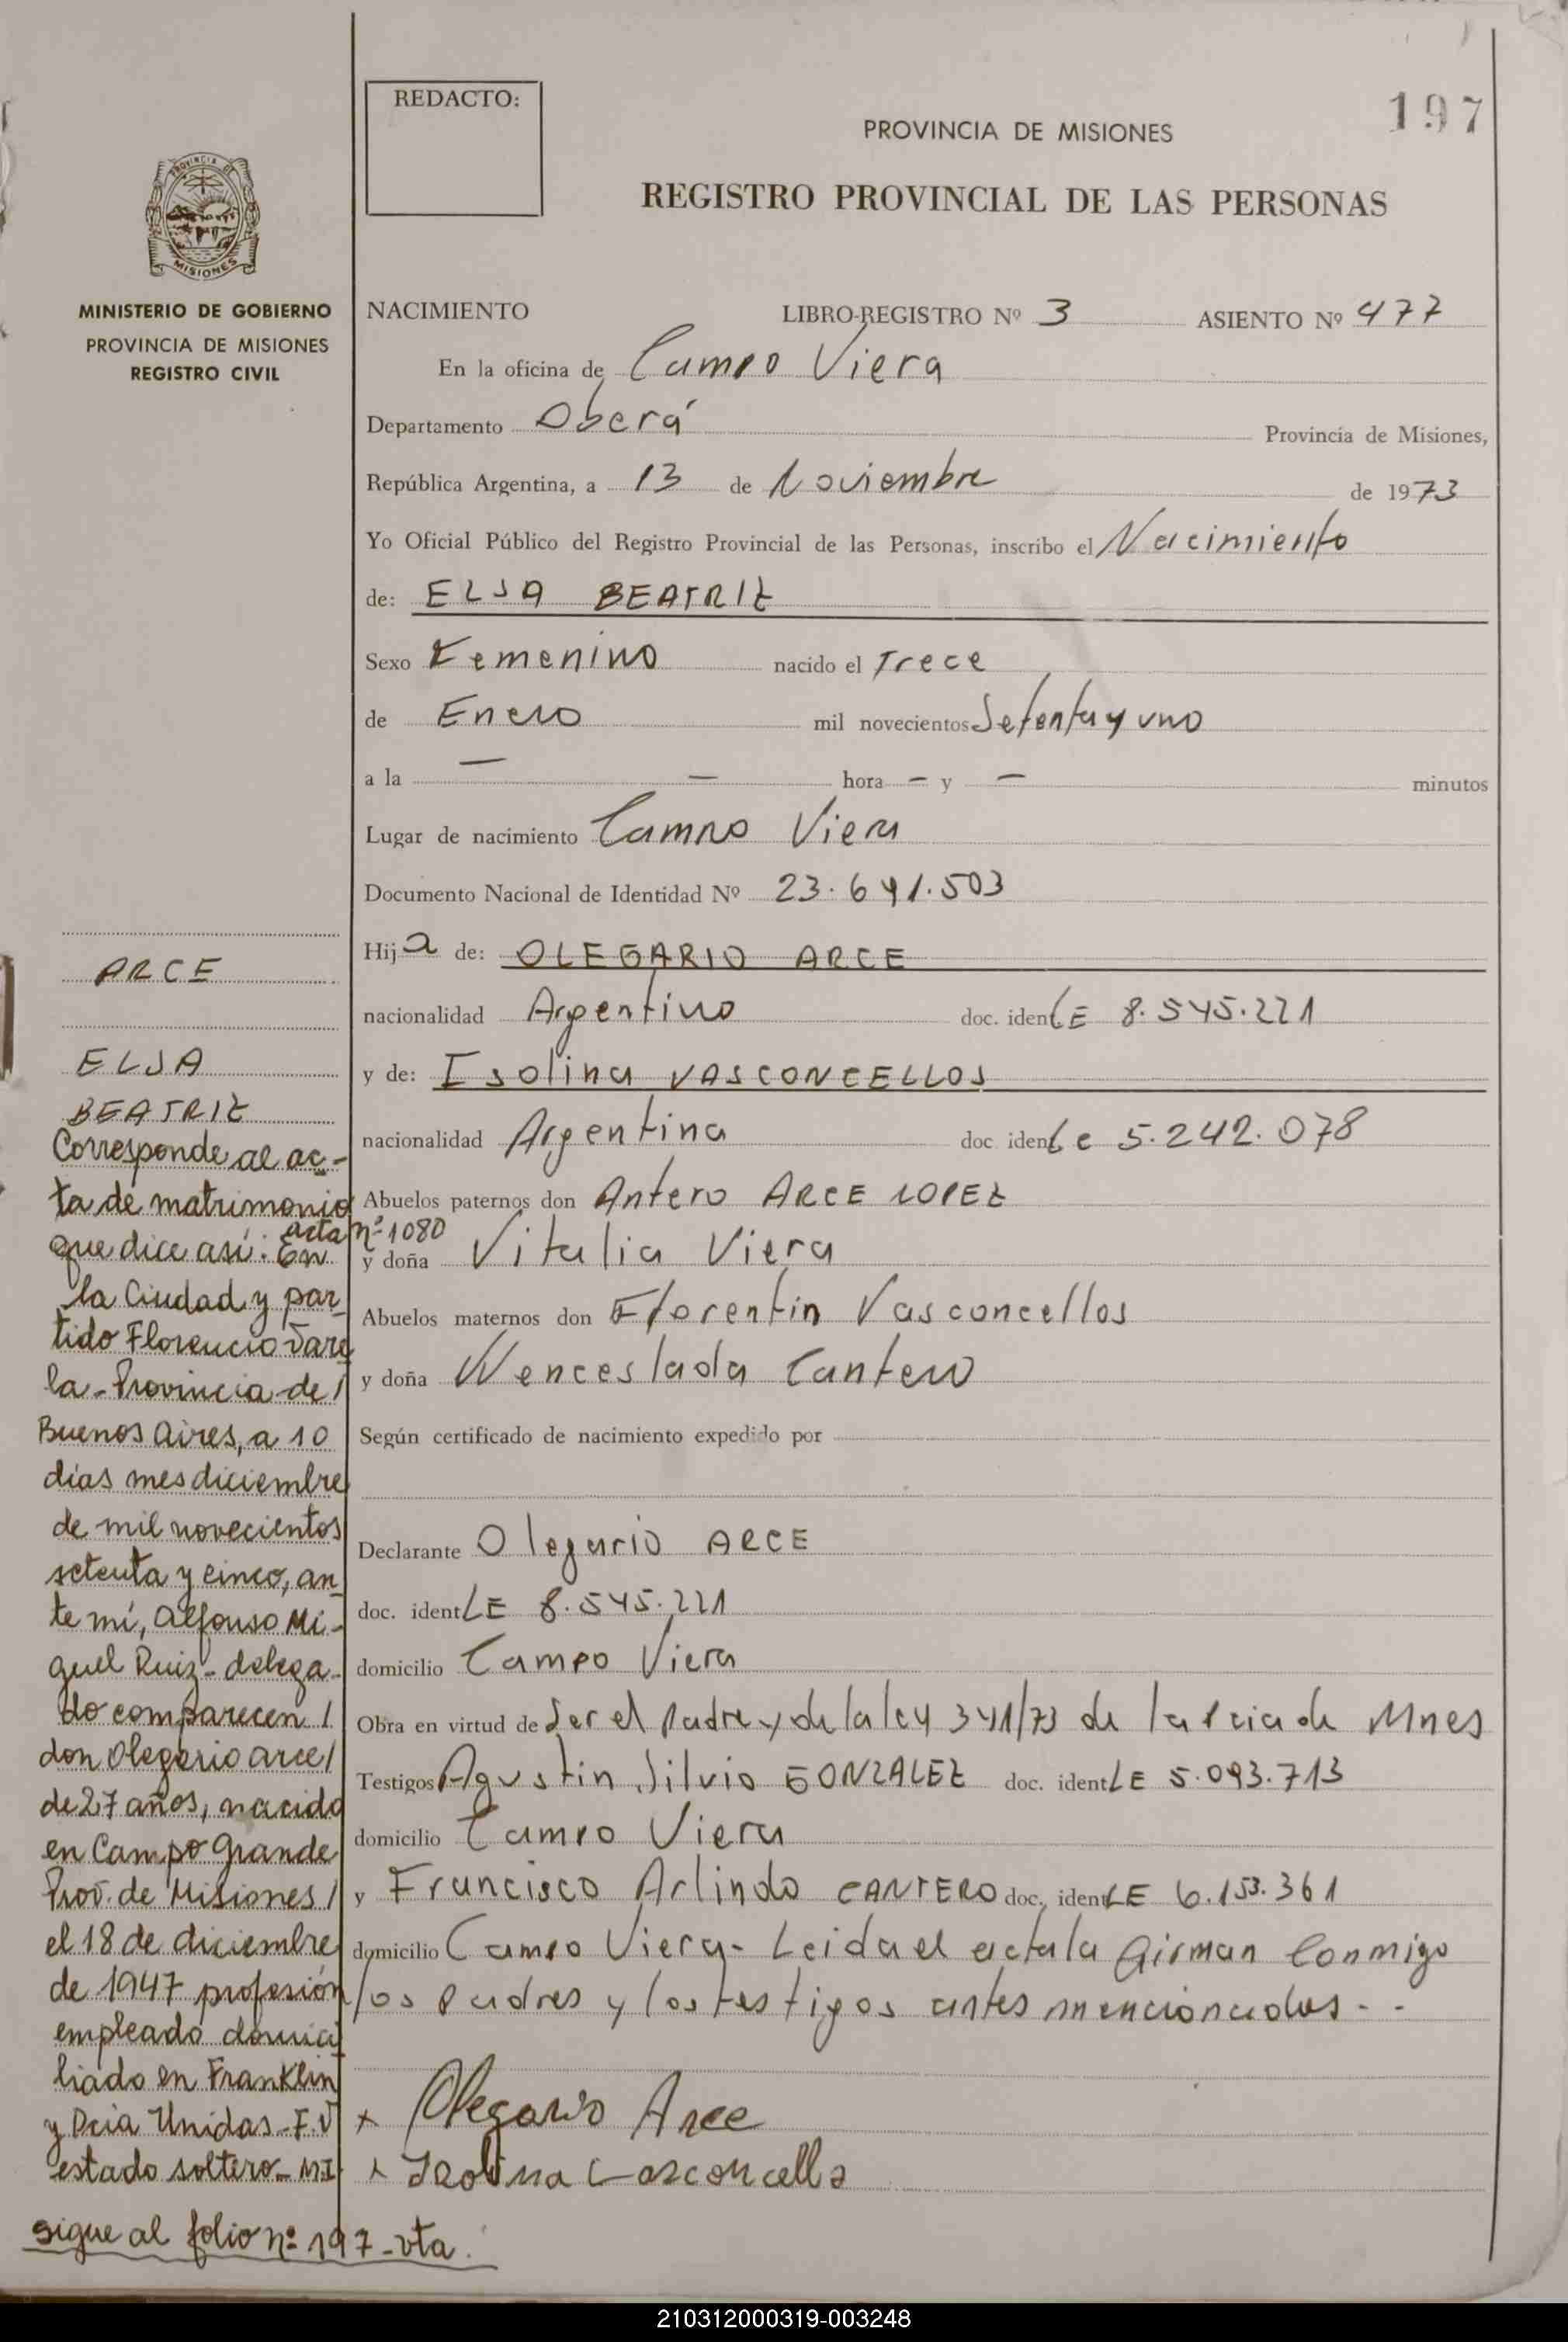 REDACTO:
197
PROVINCIA DE MISIONES
REGISTRO PROVINCIAL DE LAS PERSONAS
PROVINCIA DE
MISIONES
MINISTERIO DE GOBIERNO
PROVINCIA DE MISIONES
REGISTRO CIVIL
NACIMIENTO LIBRO-REGISTRO Nº 3 ASIENTO Nº 477
En la oficina de Campo Viera
Departamento Oberá Provincia de Misiones,
República Argentina, a 13 de Noviembre de 1973
Yo Oficial Público del Registro Provincial de las Personas, inscribo el Nacimiento
de: ELSA BEATRIZ
Sexo Femenino nacido el Trece
de Enero mil novecientos Setenta y uno
a la — — hora — y — minutos
Lugar de nacimiento Campo Viera
Documento Nacional de Identidad Nº 23.691.503
Hija de: OLEGARIO ARCE
nacionalidad Argentino doc. ident LE 8.545.221
y de: Isolina VASCONCELLOS
nacionalidad Argentina doc ident Lc 5.242.078
Abuelos paternos don Antero ARCE LOPEZ
y doña Vitalia Viera
Abuelos maternos don Florentin Vasconcellos
y doña Wenceslada Cantero
Según certificado de nacimiento expedido por
Declarante Olegario ARCE
doc. ident LE 8.545.221
domicilio Campo Viera
Obra en virtud de Ser el padre y de la ley 341/73 de la Pcia de Mnes
Testigos Agustin Silvio GONZALEZ doc. ident LE 5.093.713
domicilio Campo Viera
y Francisco Arlindo CANTERO doc, ident LE 6.153.361
domicilio Campo Viera- Leida el acta la firman Conmigo
los padres y los testigos antes mencionados - -
x Olegario Arce
x Isolina Vasconcello
ARCE
ELSA
BEATRIZ
Corresponde al ac-
ta de matrimonio
acta nº 1080
que dice así: En
la Ciudad y par-
tido Florencio Vare
la - Provincia de /
Buenos Aires, a 10
días mes diciembre
de mil novecientos
setenta y cinco, an
te mí, Alfonso Mi-
guel Ruiz - delega-
do comparecen /
don Olegario Arce /
de 27 años, nacido
en Campo Grande
Prov. de Misiones /
el 18 de diciembre
de 1947 profesión
empleado domici
liado en Franklin
y Pcia Unidas - F.V
estado soltero - MI
sigue al folio nº 197 - vta.
210312000319-003248